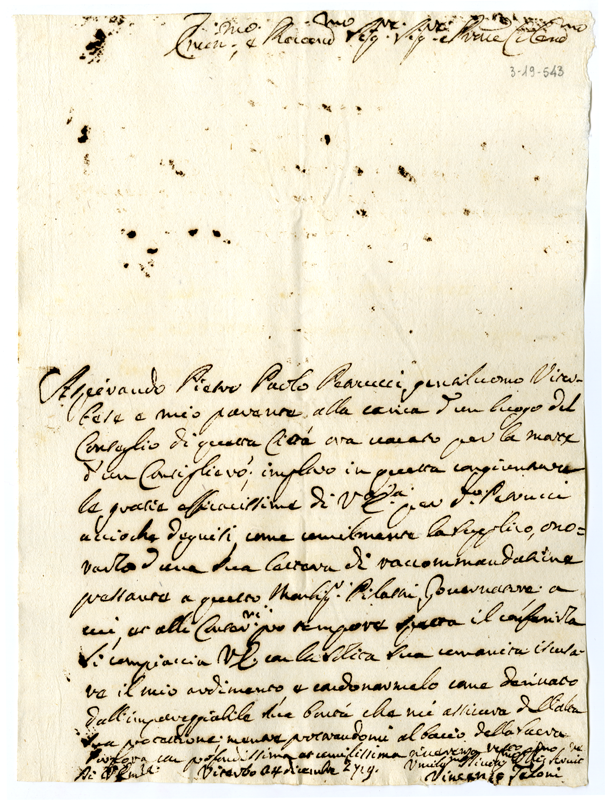 Emin.mo e Rever.mo Sig.r Sig.r e Pr.one Colend.mo
3-19-543
Aspirando Pietro Paolo Petrucci gentiluomo Viter-
bese e mio parente alla carica d'un luogo del
Consiglio di questa Città ora vacato per la morte
d'un Consigliero; imploro in questa congiuntura
le grazie efficacissime di V.E. per d.o Petrucci
acciochè degnisi, come umilmente la supplico, ono=
rarlo d'una sua lettera di raccommandatione
pressante a questo Mons.r Pilastri Governatore a
cui, et alli Conser.ri pro tempore spetta il conferirla
Si compiaccia V.E. con la solita sua umanità iscusa-
re il mio ardimento e condonarmelo come derivato
dall'impareggiabile sua bontà che mi assicura dell'alta
sua protezione mentre prostrandomi al baccio della Sacra
Porpora con profondissima et umilissima riverenza resto
Di V. Em.za Viterbo 24 dicembre 1719.
Vincenzo Teloni